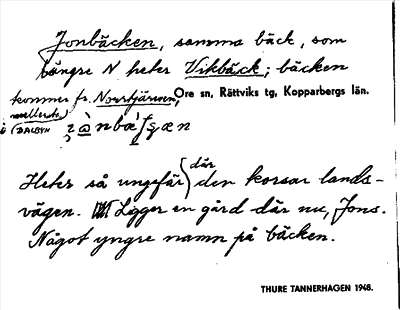 Jonbäcken, samma bäck, som
längre N heter Vikbäck; bäcken
kommer fr. Norrtjärnen, Ore sn, Rättviks tg, Kopparbergs län.
i DALBYN
Heter så ungefär där den korsar lands-
vägen. Ligger en gård där nu, Jons.
Något yngre namn på bäcken.
THURE TANNERHAGEN 1948.